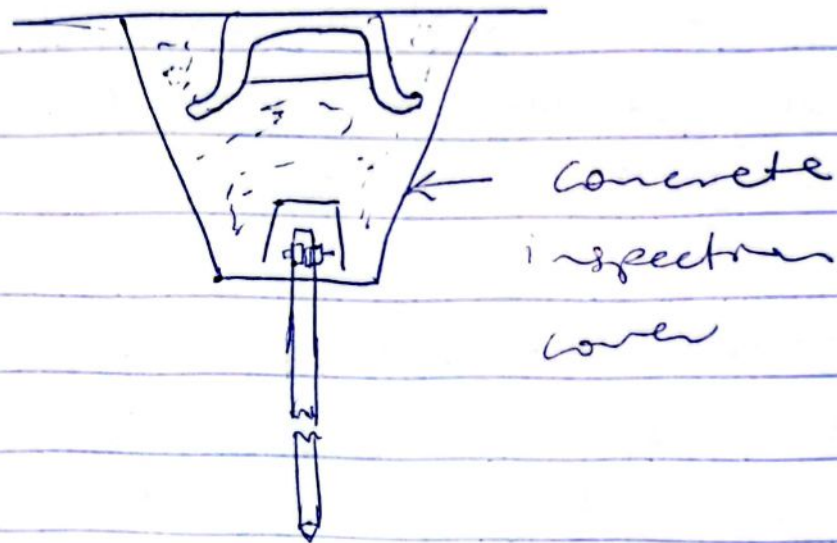 concrete
inspection
cover